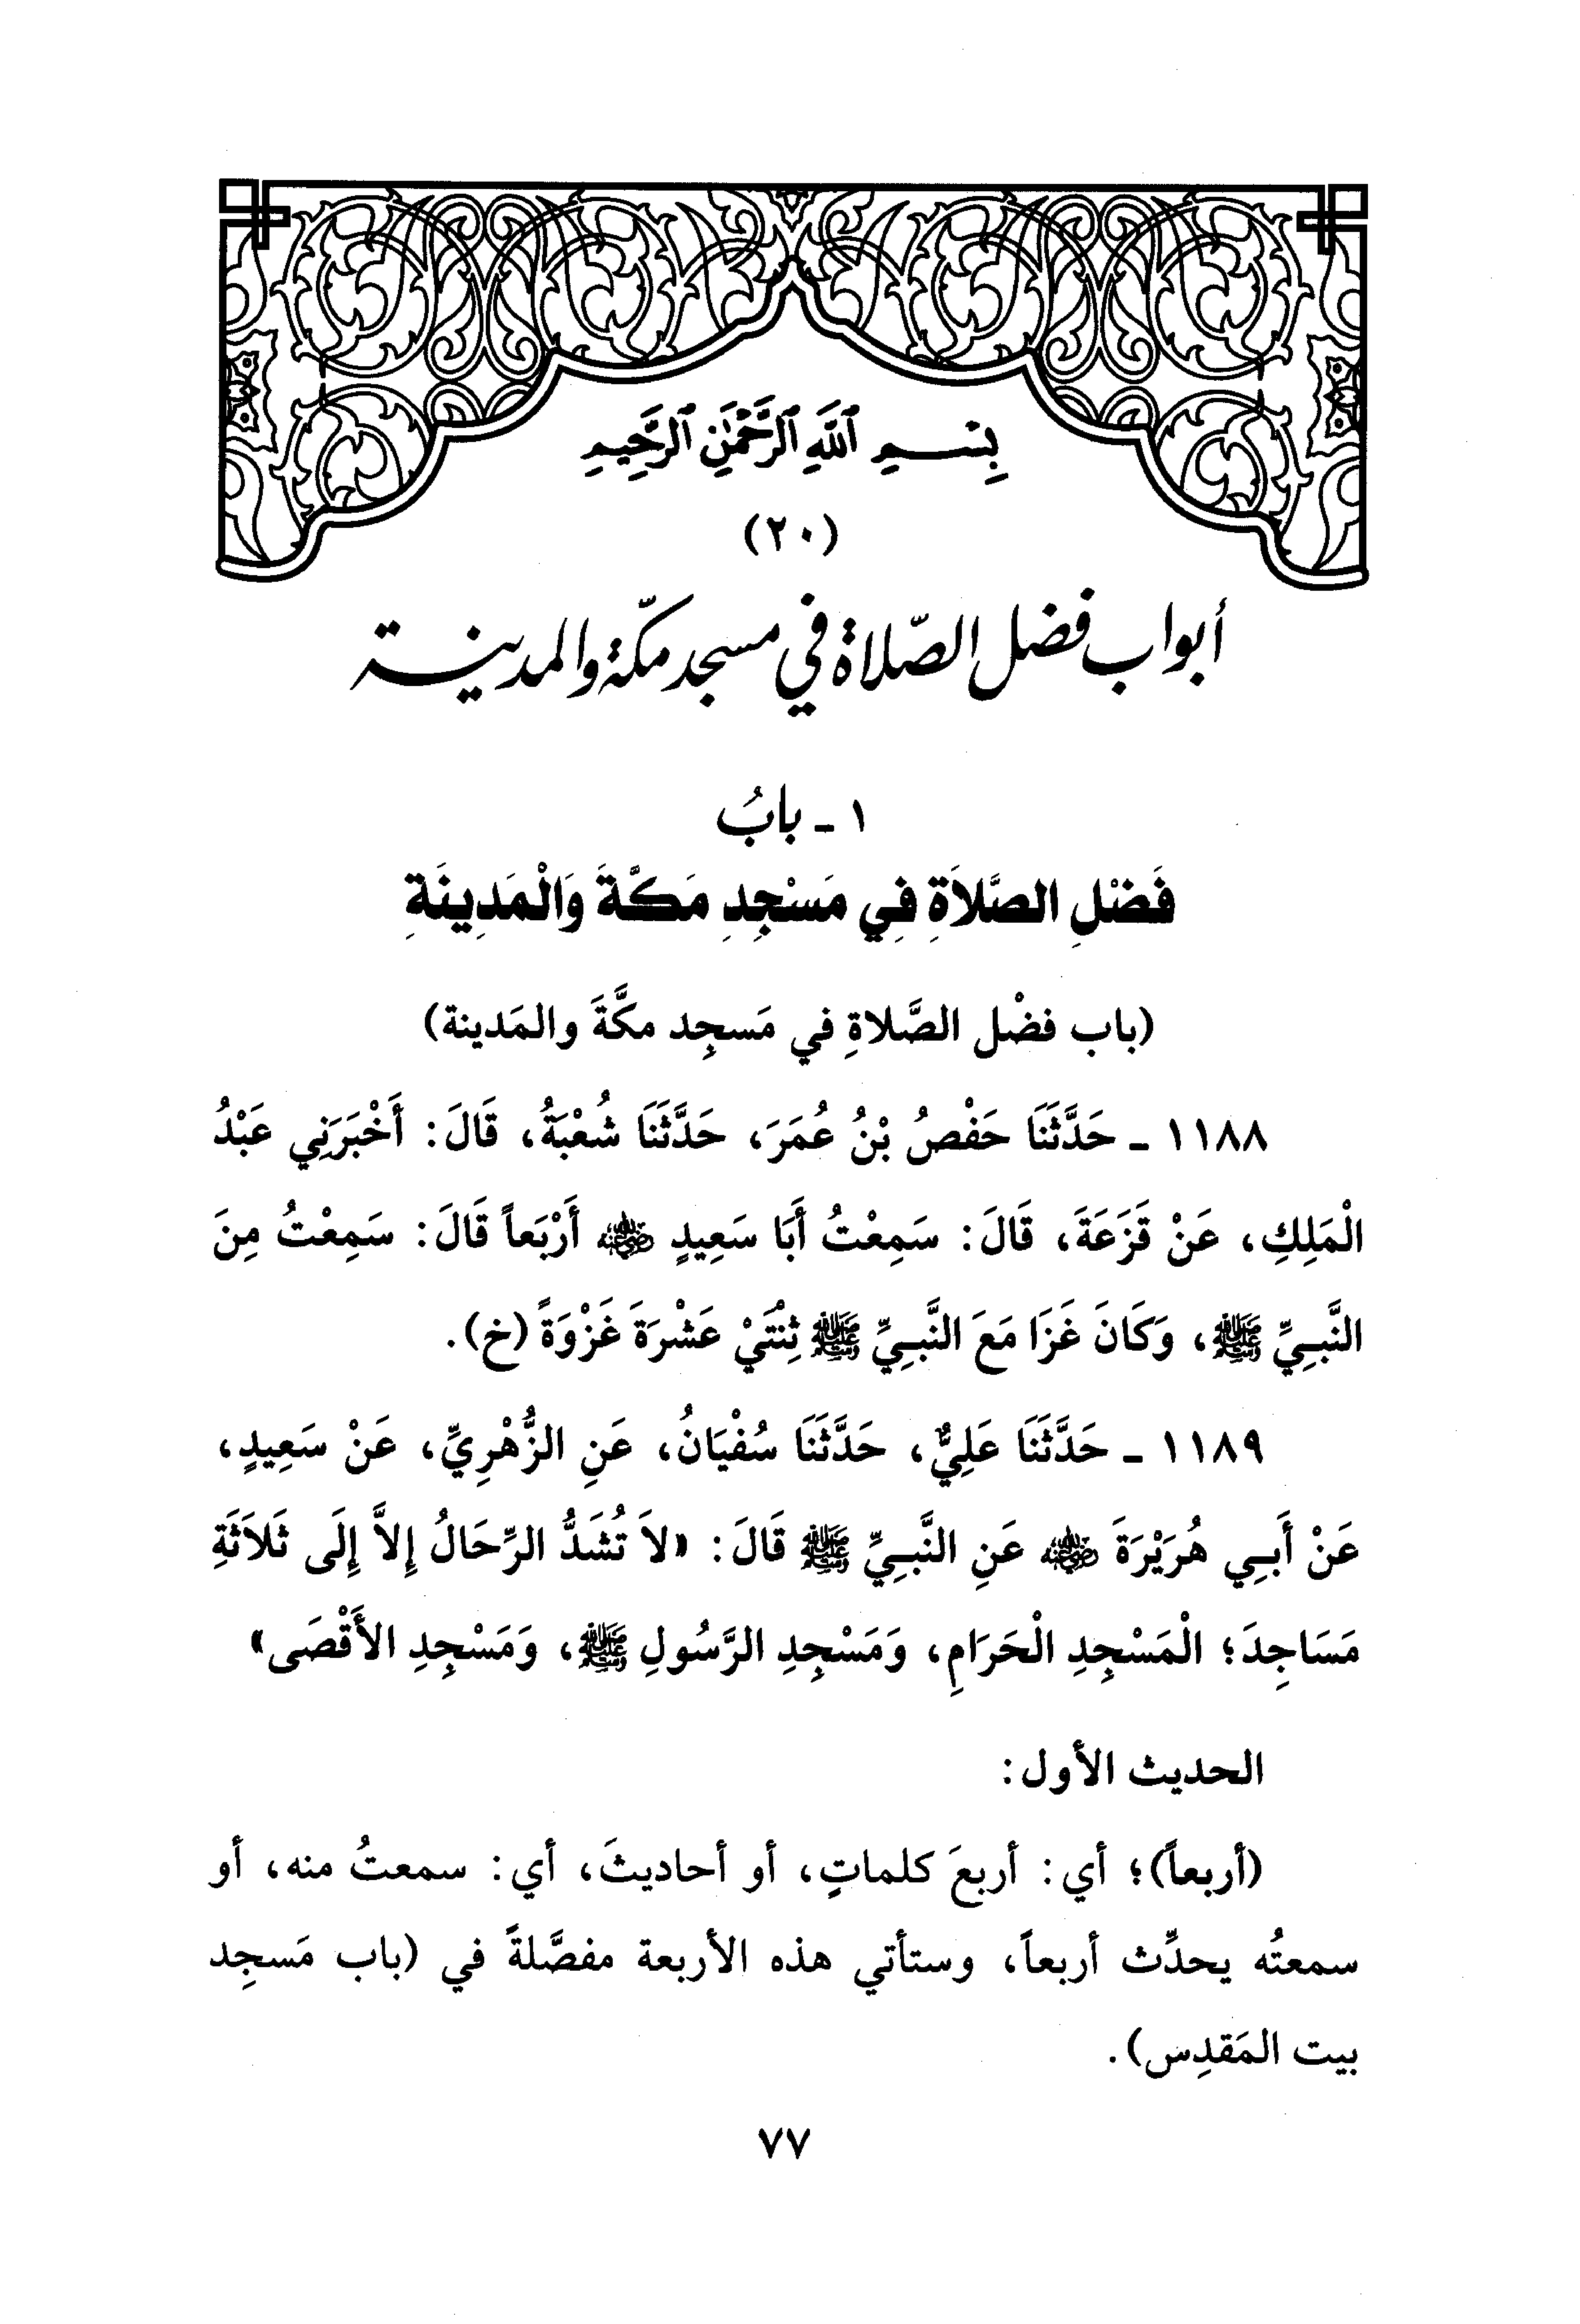 بِسْمِ ٱللَّهِ ٱلرَّحْمَٰنِ ٱلرَّحِيمِ
(٢٠)
أبواب فضل الصّلاة في مسجد مكّة والمدينة
١ - بابُ
فَضْلِ الصَّلاَةِ فِي مَسْجِدِ مَكَّةَ وَالْمَدِينَةِ
(باب فضْل الصَّلاةِ في مَسجِد مكَّةَ والمَدينة)
١١٨٨ - حَدَّثَنَا حَفْصُ بْنُ عُمَرَ، حَدَّثَنَا شُعْبَةُ، قَالَ: أَخْبَرَنِي عَبْدُ
الْمَلِكِ، عَنْ قَزَعَةَ، قَالَ: سَمِعْتُ أَبَا سَعِيدٍ رضي الله عنه أَرْبَعاً قَالَ: سَمِعْتُ مِنَ
النَّبِيِّ ﷺ، وَكَانَ غَزَا مَعَ النَّبِيِّ ﷺ ثِنْتَيْ عَشْرَةَ غَزْوَةً (خ).
١١٨٩ - حَدَّثَنَا عَلِيٌّ، حَدَّثَنَا سُفْيَانُ، عَنِ الزُّهْرِيِّ، عَنْ سَعِيدٍ،
عَنْ أَبِي هُرَيْرَةَ رضي الله عنه عَنِ النَّبِيِّ ﷺ قَالَ: «لاَ تُشَدُّ الرِّحَالُ إِلاَّ إِلَى ثَلاَثَةِ
مَسَاجِدَ؛ الْمَسْجِدِ الْحَرَامِ، وَمَسْجِدِ الرَّسُولِ ﷺ، وَمَسْجِدِ الأَقْصَى»
الحديث الأول:
(أربعاً)؛ أي: أربعَ كلماتٍ، أو أحاديثَ، أي: سمعتُ منه، أو
سمعتُه يحدِّث أربعاً، وستأتي هذه الأربعة مفصَّلةً في (باب مَسجِد
بيت المَقدِس).
٧٧